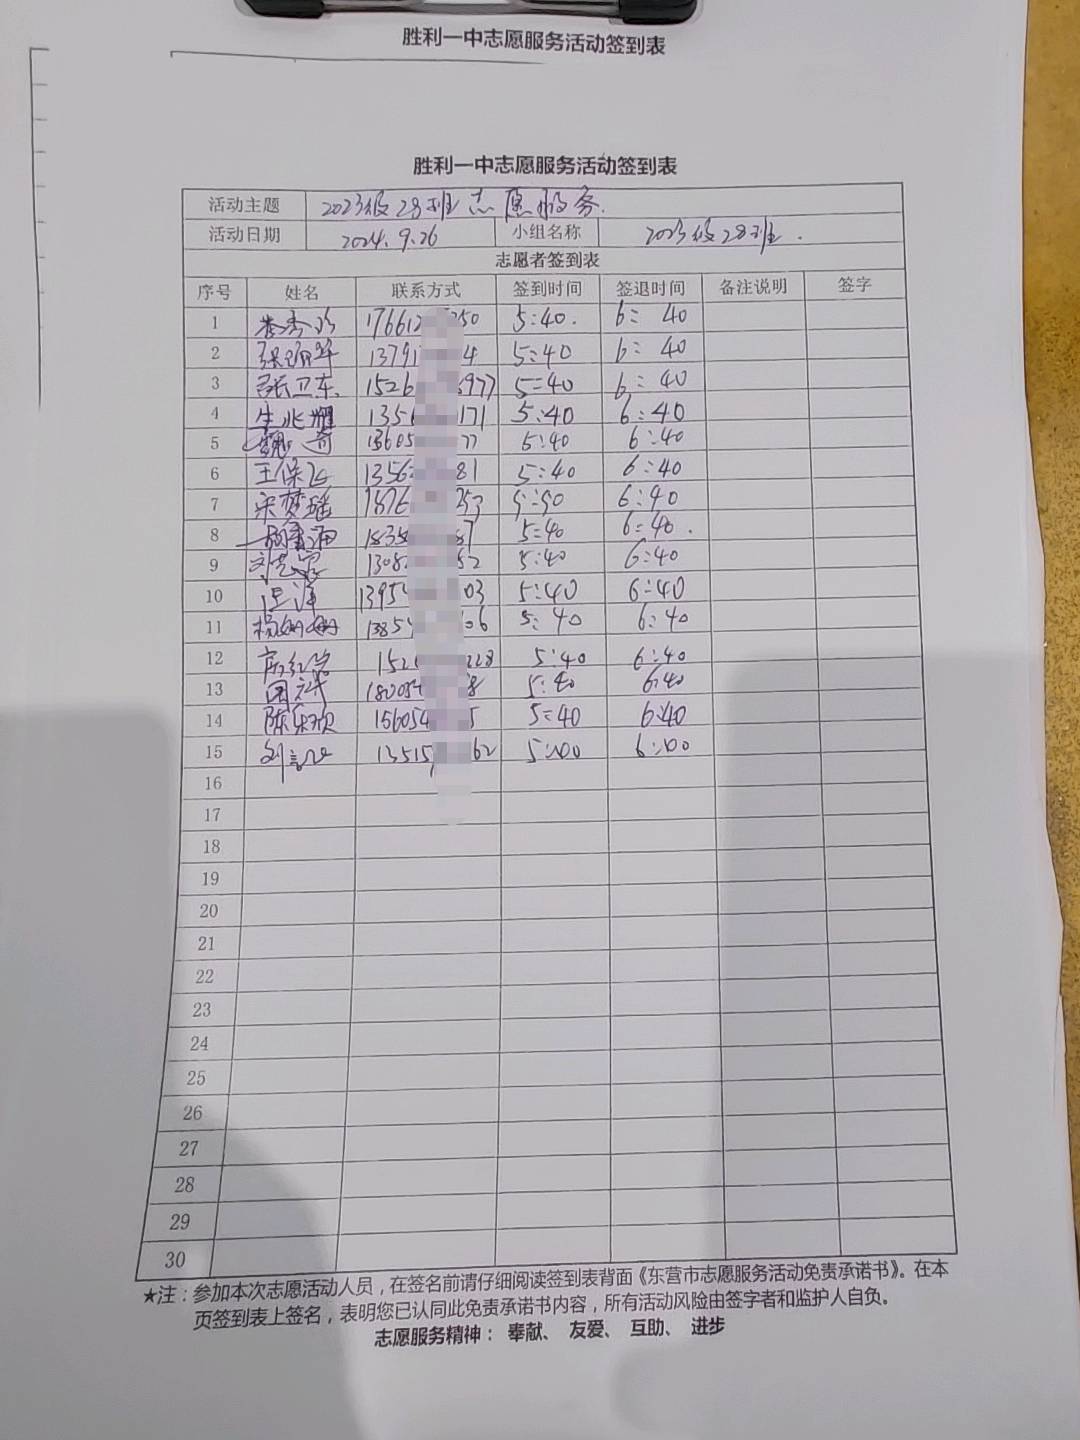 胜利一中志愿服务活动签到表
胜利一中志愿服务活动签到表
活动主题 2023级28班志愿服务.
活动日期 2024.9.26 小组名称 2023级28班.
志愿者签到表
序号 姓名 联系方式 签到时间 签退时间 备注说明 签字
1 17661 250 5:40. 6: 40
2 1379 4 5:40 6: 40
3 张卫东 1526 977 5:40 6: 40
4 生兆耀 135 171 5:40 6:40
5 魏奇 13605 77 5:40 6:40
6 王保飞 1356 81 5:40 6:40
7 宋梦瑶 1876 253 6:40
8 1835 5:40 6:40.
9 1308 52 5:40 6:40
10 1395 03 5:40 6:40
11 杨姗姗 1385 106 5:40 6:40
12 152 228 5:40 6:40
13 18005 8 5:40 6:40
14 陈乐欣 15605 5 5:40 6:40
15 13515 62 5:00 6:00
16
17
18
19
20
21
22
23
24
25
26
27
28
29
30
★注：参加本次志愿活动人员，在签名前请仔细阅读签到表背面《东营市志愿服务活动免责承诺书》。在本
页签到表上签名，表明您已认同此免责承诺书内容，所有活动风险由签字者和监护人自负。
志愿服务精神：奉献、友爱、互助、进步